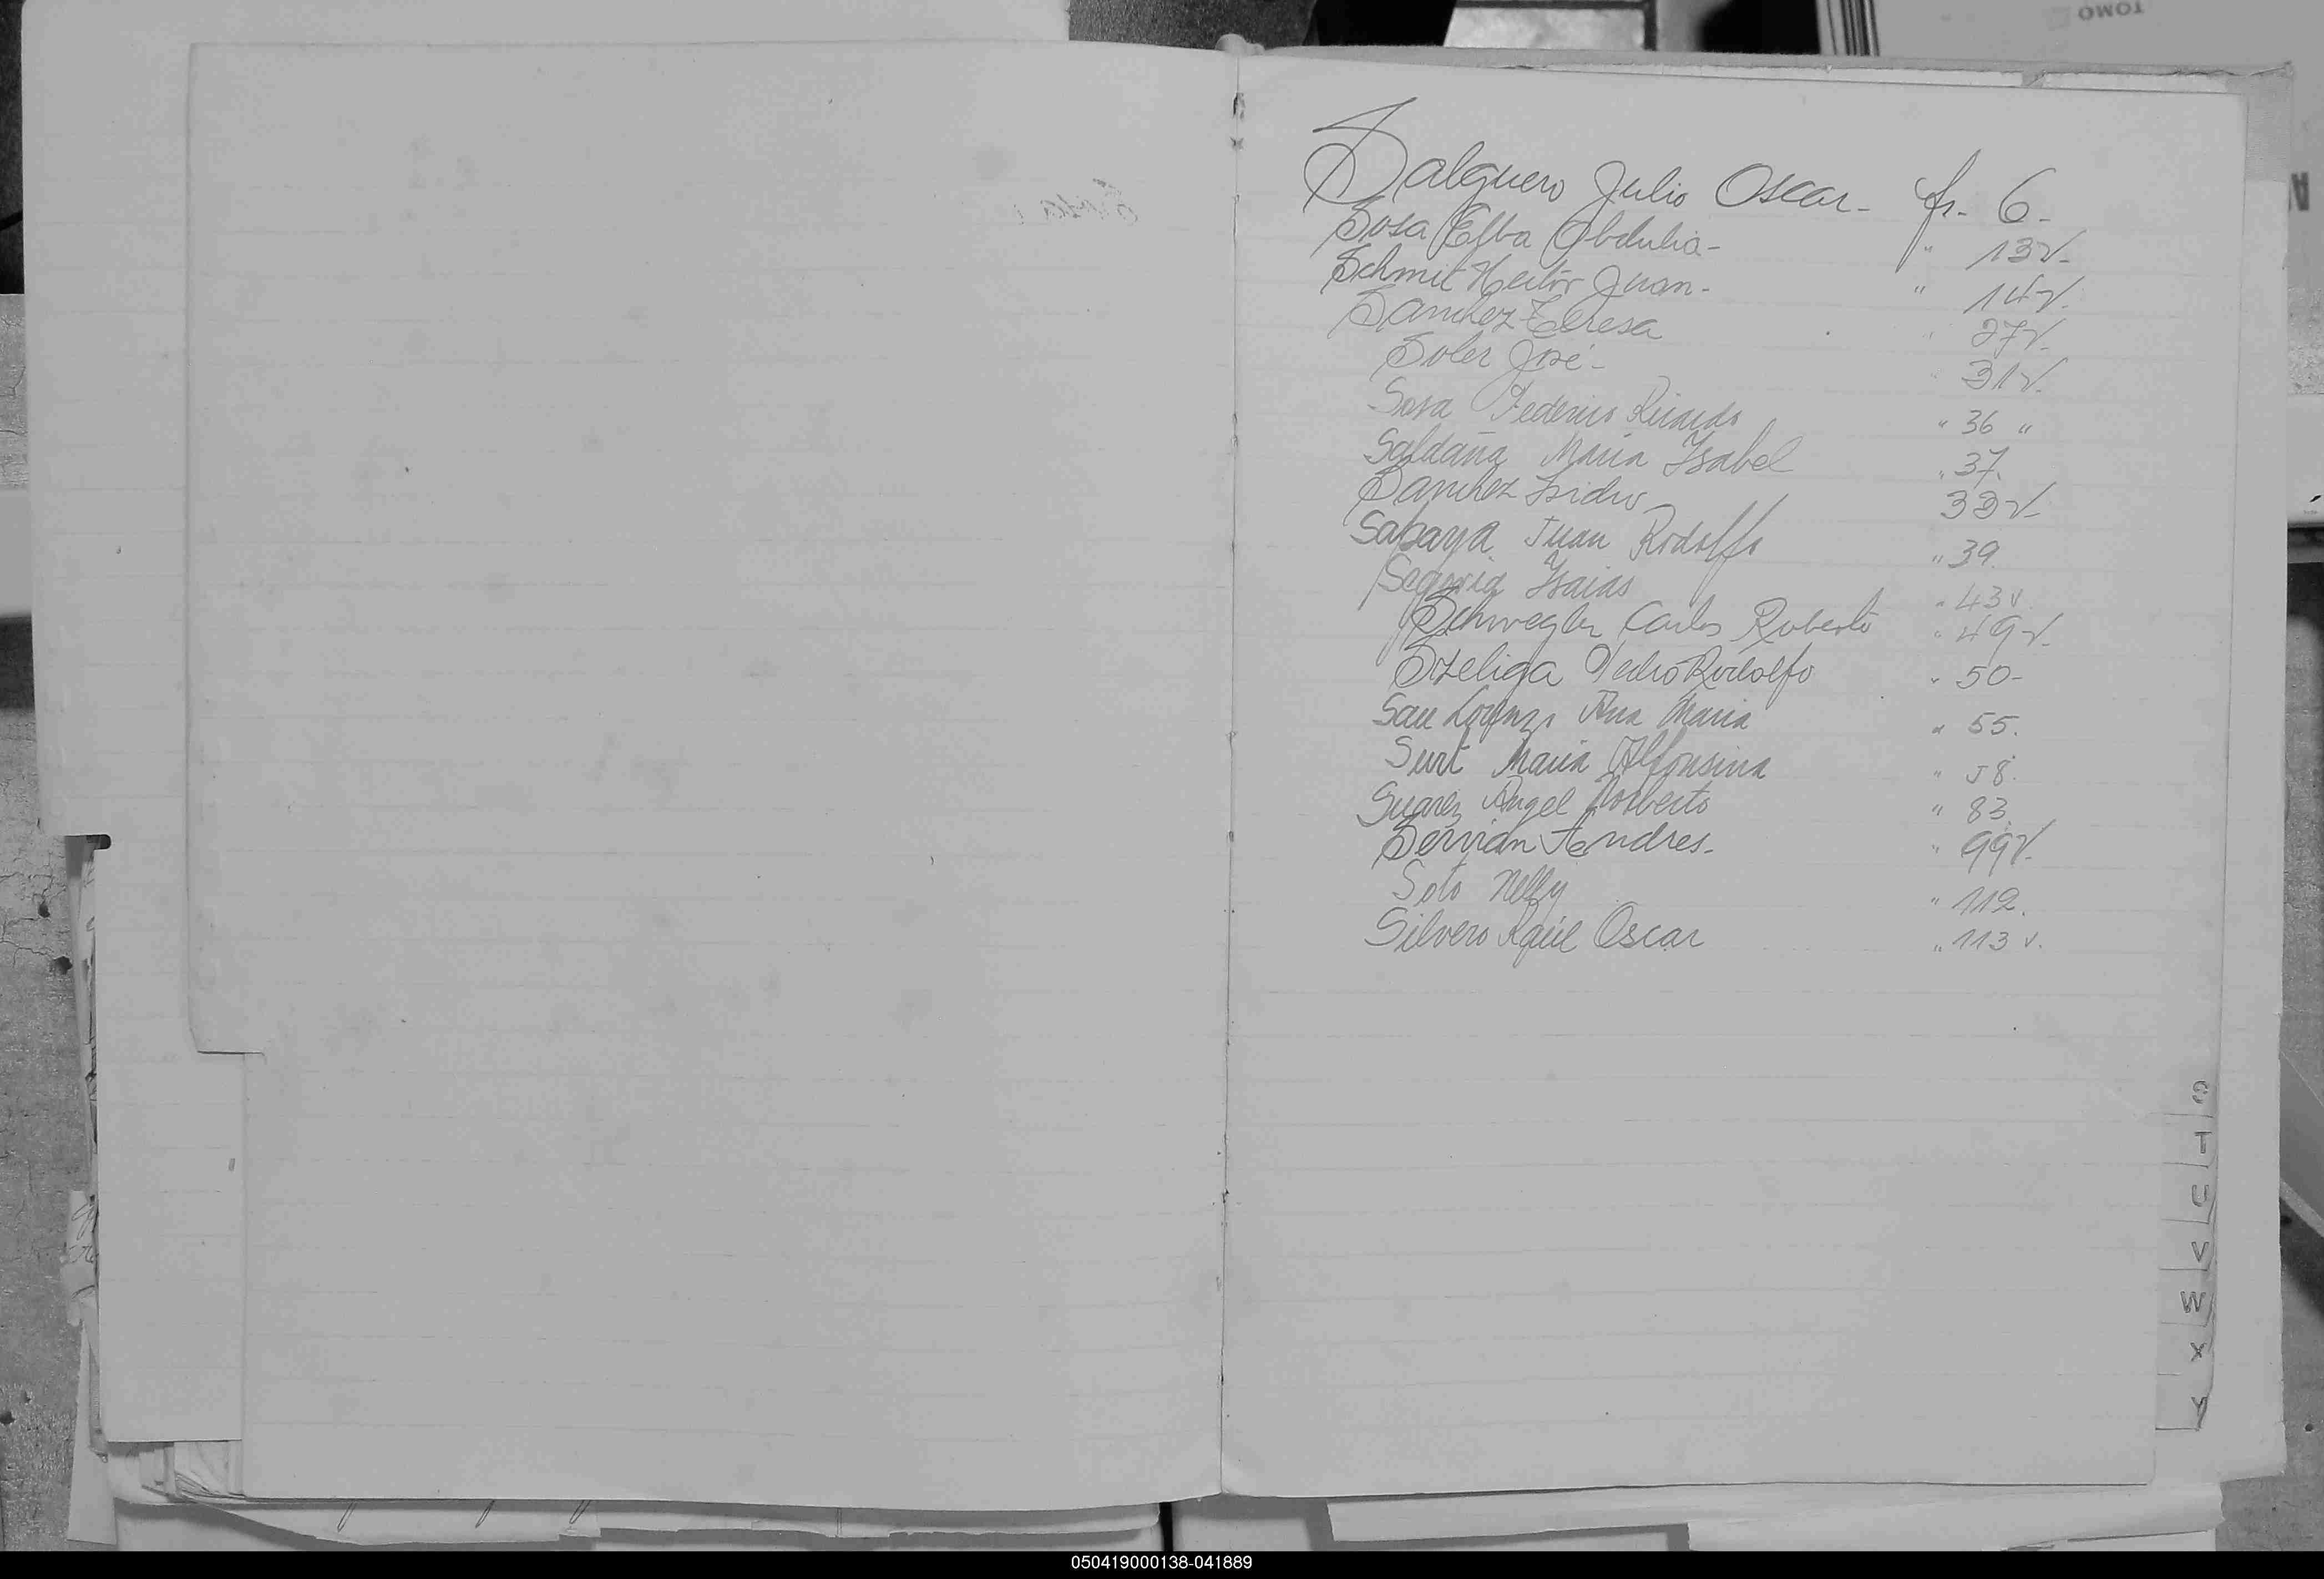 TOMO
Salguero Julio Oscar - fs. 6-
Sosa Elba Obdulia - " 13v-
Schmit Hector Juan - " 14v-
Sanchez Teresa " 27v-
Soler José - " 31v-
Sosa Federico Ricardo " 36 "
Saldaña Maria Isabel " 37.
Sanchez Isidro 38v-
Sapaya Juan Rodolfo " 39.
Segovia Isaias " 43v
Schwegler Carlos Roberto " 49v-
Szeliga Pedro Rodolfo " 50-
San Lorenzo Ana Maria " 55.
Maria Alfonsina " 58.
Suarez Angel Norberto " 83.
Servian Andres - " 99v-
Soto Nelly " 112.
Silvero Raúl Oscar " 113 v.
S
T
U
V
W
X
Y
050419000138-041889